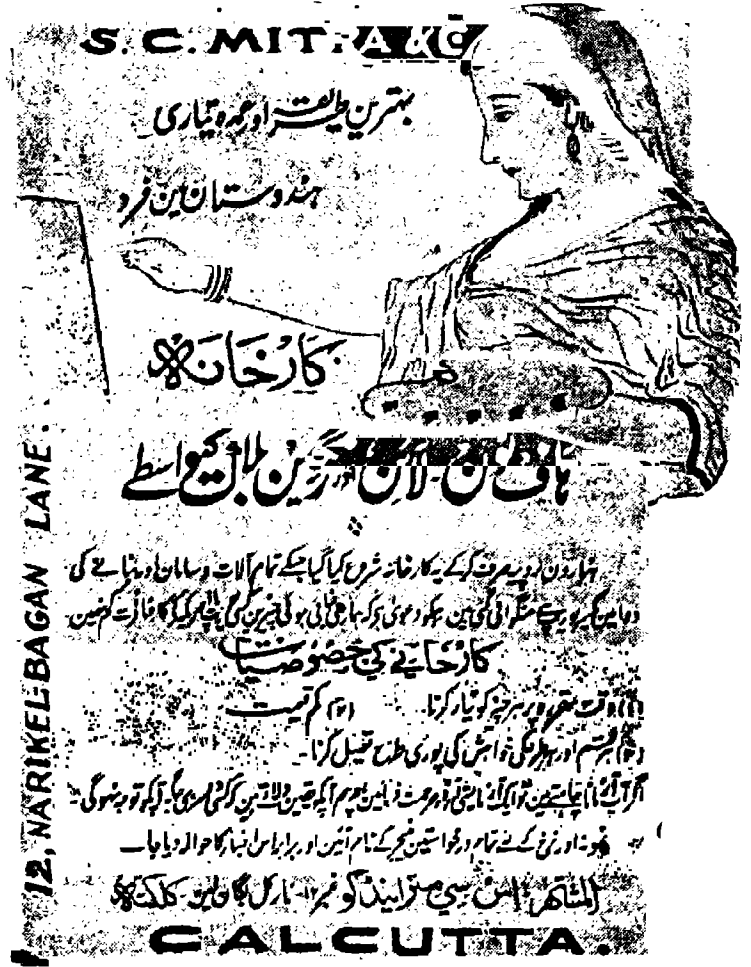 S. C. MITRA & C
بہترین طریقہ اور عمدہ تیاری
ہندوستان میں فرد
کارخانہ
ہاف ٹن لائن اور تھری کلر بلاک کیواسطے
ہزارون روپیہ صرف کرکے یہ کارخانہ شروع کیا گیا جسکے تمام آلات و سامان اور بنانے کی
سے منگوائی گئی ہین ہمکو دعوی ہے کہ ہماری بنائی ہوئی چیزین کسی
کارخانے کی خصوصیات
(۱) وقت مقررہ پر ہر چیز کو تیار کرنا۔ (۲) کم قیمت
(۳) ہر قسم اور ہر رنگ کی خواہش کی پوری طرح تعمیل کرنا۔
اگر آپ چاہتے ہین تو ایک آزمایشی آرڈر مرحمت فرمائین ہم آپکو یقین دلاتے ہین کہ کسی دوسری جگہ آپکو توجہ نہوگی۔
نمونہ اور نرخ کے لئے تمام درخواستین منیجر کے نام آئین اور براہ راس اخبار کا حوالہ دیا جاے
المشتہر ایس سی مترا اینڈ کو نمبر ۱۲ نارکل بگان لین کلکتہ
12, NARIKEL BAGAN LANE.
CALCUTTA.